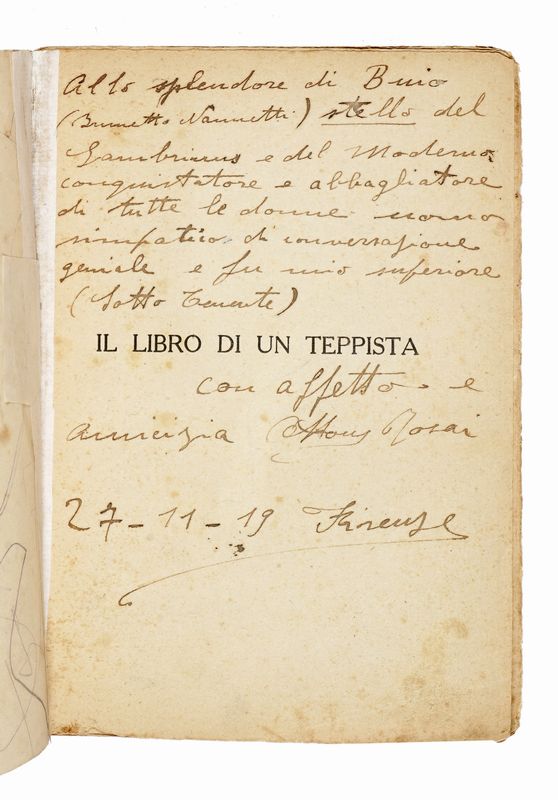 Allo splendore di Buio
(Brunetto Nannetti) stello del
Gambrinus e del Moderno
conquistatore e abbagliatore
di tutte le donne uomo
simpatico di conversazione
geniale e fu mio superiore
(Sotto Tenente)
IL LIBRO DI UN TEPPISTA
con affetto e
amicizia Ottone Rosai
27-11-19 Firenze